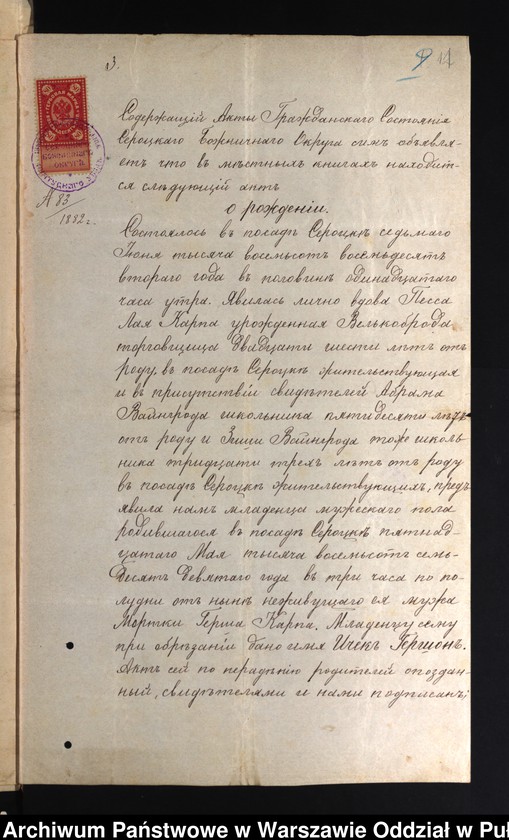 3.
9 14
А 83/1882 г.
Содержащій Акты Гражданскаго Состоянія
Сероцкаго Божничнаго Округа симъ объявля-
етъ что въ мѣстныхъ книгахъ находит-
ся слѣдующій актъ
о рожденіи.
Состоялось въ посадѣ Сероцкѣ седьмаго
Іюня тысяча восемьсотъ восемьдесятъ
втораго года въ половинѣ одинадцатаго
часа утра. Явилась лично вдова Песса
Лая Карпа урожденная Велькоброда
торговщица двадцати шести лѣтъ отъ
роду, въ посадѣ Сероцкѣ жительствующая
и въ присутствіи свидѣтелей Абрама
Вайнгрода школьника пятидесяти лѣтъ
отъ роду и Зиши Вайнгрода тоже школь-
ника тридцати трехъ лѣтъ отъ роду
въ посадѣ Сероцкѣ жительствующихъ, предъ-
явила намъ младенца мужескаго пола
родившагося въ посадѣ Сероцкѣ пятнад-
цатаго Мая тысяча восемьсотъ семь-
десятъ девятаго года въ три часа по по-
лудни отъ нынѣ неживущаго ея мужа
Мортки Герша Карпа. Младенцу сему
при обрѣзаніи дано имя Ичекъ Гершонъ.
Актъ сей по нерадѣнію родителей опоздан-
ный, свидѣтелями и нами подписанъ,
Archiwum Państwowe w Warszawie Oddział w Puł